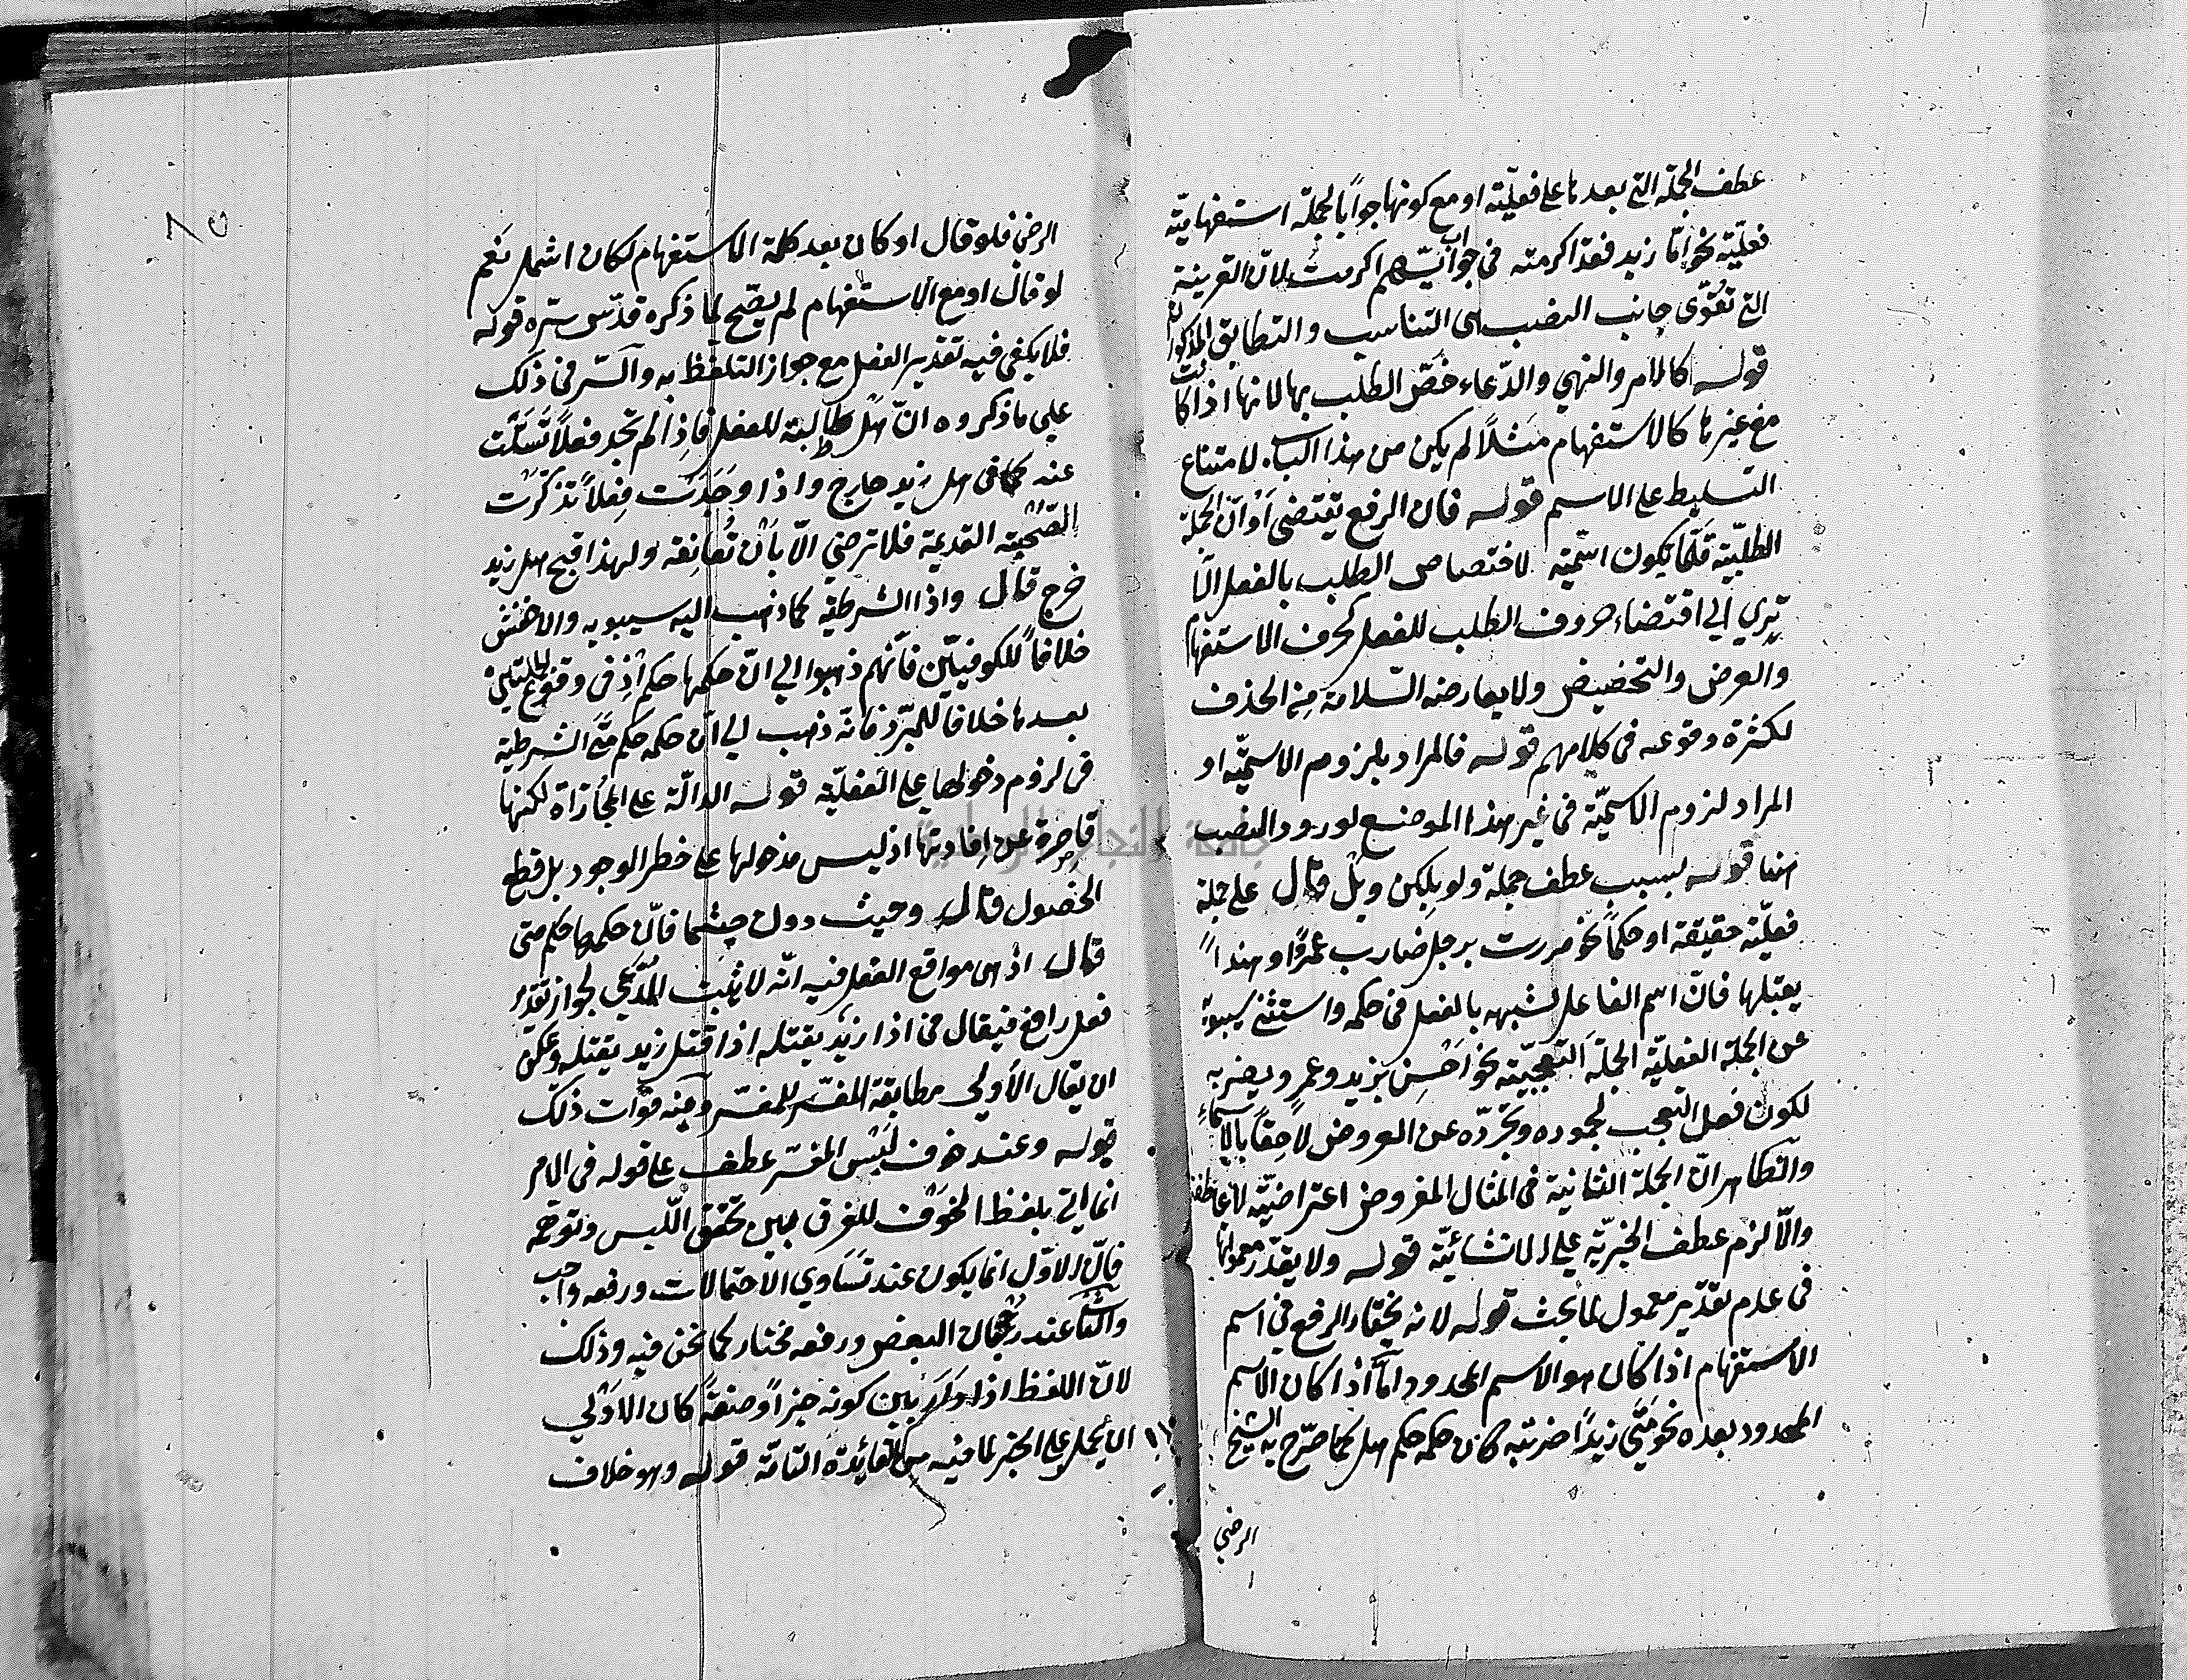 عطف الجملة التي بعدها على فعليّة او مع كونها جواباً بالجملة استفهاميّة
فعليّة نحو امّا زيد فقد اكرمته في جواب ايّهم اكرمت لانّ القرينة
التي تقوّى جانب النصب هي التناسب والتطابق المذكور
قوله كالامر والنهي والدّعاء خصّ الطلب بها لانها اذا كانت
مع غيرها كالاستفهام مثلاً لم يكن من هذا الباب لامتناع
التسليط على الاسم قوله فان الرفع يقتضى اَوْ انّ الجملة
الطلبيّة قلّما يكون اسميّة لاختصاص الطلب بالفعل اَلَا
تري الي اقتضاء حروف الطلب للفعل كحرف الاستفهام
والعرض والتحضيض ولا يعارضه السّلامة مِن الحذف
لكثرة وقوعه في كلامهم قوله فالمراد بلزوم الاسميّه او
المراد لزوم الاسميّة في غير هذا الموضع لورود النصب
ههنا قوله بسبب عطف جملة ولو بلكن وبل قال على جملة
فعليّة حقيقة او حكماً نحو مررت برجل ضارب عمرًا وهنداً
يقتلها فانّ اسم الفاعل لشبهه بالفعل في حكمه واستثنى سيبويه
عن الجملة الفعليّة الجملة التعجبيّة نحو احْسِن بزيد وعمرو يضربه
لكون فعل التعجب لجموده وتجرّده عن العروض لاحِقاً بالاسماءِ
والظاهر انّ الجملة الثانية في المثال المفروض اعتراضيّة لا عاطفة
والّا لزم عطف الخبريّة على الانشائيّة قوله ولا يقدّر معمولها
في عدم تقدير معمول لما بحث قوله لانه يختار الرفع في اسم
الاستفهام اذا كان هو الاسم المحدود امّا اذا كان الاسم
المحدود بعده نحو مَتَى زيدًا ضربته كان حكمه حكم هل كما صرّح به الشيخ
الرضي
الرضي فلو قال او كان بعد كلمة الاستفهام لكان اشمل نعم
لو قال او مع الاستفهام لم يصّح لما ذكره قدّس سرّه قوله
فلا يكفي فيه تقدير الفعل مع جواز التلفّظ به والسّر في ذلك
على ما ذكروه انّ هَلْ طالبة للفعل فاِذا لم تجد فعلاً تَسَلَّت
عنه كما في هل زيد خارج واذا وَجَدَت فِعلاً تذكّرَت
الصّحبة القديمة فلا ترضي الّا بأن تُعانِقه ولهذا قبح هل زيد
خرج قال واذا الشرطية كما ذهب اليه سيبويه والاخفش
خلافاً للكوفيّين فانّهم ذهبوا الي انّ حكمها حكم اذ في وقوع الجملتين
بعدها خلافا للمبرّد فانّه ذهب الي انّ حكمه حكم متى الشرطية
في لزوم دخولها على الفعليّة قوله الدالّة على المجازاة لكنها
قاصِرة عن اِفادتها اذ ليس مدخولها على خطر الوجود بل قطع
الحصول قال وحيث دون حيثما فانّ حكمها حكم متى
قال اذ هي مواقع الفعل فيه انّه لا يُثبت المُدَّعي لجواز تقدير
فعل رافع فيقال في اذا زيد يقتله اذا قتل زيد يقتله ويمكن
ان يقال الأولي مطابقة المفسَّر للمفسِّر وفيه فوات ذلك
قوله وعند خوف لَبْس المفسّر عطف على قوله في الامر
انما اتي بلفظ الخَوْف للفرق بين تحقق اللّبس وتوهّمه
فانّ الاوّل انما يكون عند تَسَاوي الاحتمالات ورفعه واجب
والثاني عند رُجحان البعض ورفعه مختار كما نحن فيه وذلك
لانّ اللفظ اذا دار بين كونه خبراً وصفةً كان الاَوْلَي
ان يحمل على الخبر لما فيه من الفائدة التامّة قوله وهو خلاف